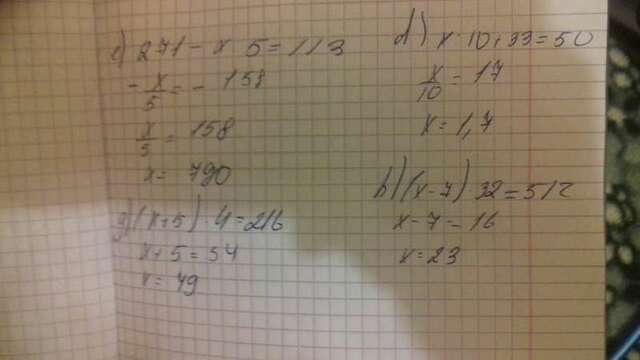 271 - x 5 = 113
- x/5 = - 158
x/5 = 158
x = 790
(x+5) · 4 = 216
x + 5 = 54
x = 49
d) x · 10 + 33 = 50
x/10 = 17
x = 1,7
b) (x-7) 32 = 512
x - 7 = 16
x = 23